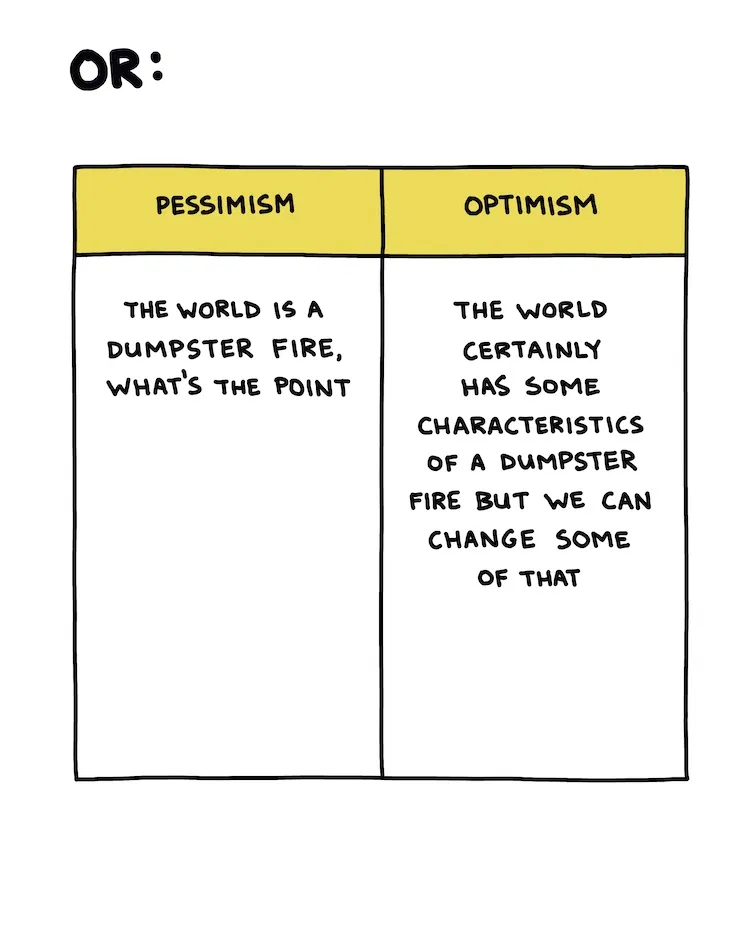 OR:
PESSIMISM
OPTIMISM
THE WORLD IS A
DUMPSTER FIRE,
WHAT'S THE POINT
THE WORLD
CERTAINLY
HAS SOME
CHARACTERISTICS
OF A DUMPSTER
FIRE BUT WE CAN
CHANGE SOME
OF THAT